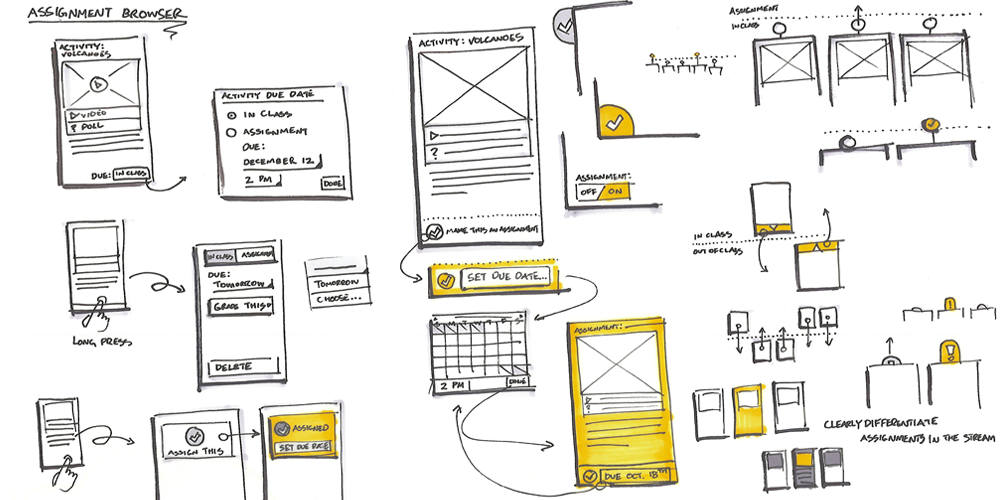 ASSIGNMENT BROWSER
ACTIVITY:
VOLCANOES
VIDEO
? POLL
DUE: IN CLASS
ACTIVITY DUE DATE
IN CLASS
ASSIGNMENT
DUE:
DECEMBER 12
2 PM
DONE
LONG PRESS
IN CLASS
ASSIGNED
DUE:
TOMORROW
GRADE THIS
DELETE
TOMORROW
CHOOSE...
ASSIGN THIS
ASSIGNED
SET DUE DATE
ACTIVITY: VOLCANOES
?
MAKE THIS AN ASSIGNMENT
SET DUE DATE...
2 PM
DONE
ASSIGNMENT:
?
DUE OCT. 18TH
ASSIGNMENT:
OFF/ON
ASSIGNMENT
IN CLASS
IN CLASS
OUT OF CLASS
!
!
CLEARLY DIFFERENTIATE
ASSIGNMENTS IN THE STREAM